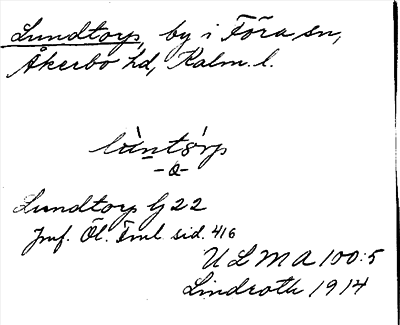 Lundtorp, by i Föra sn,
Åkerbo hd, Kalm. l.
lùntórp
-a-
Lundtorp lj 22
Jmf. Öl. Fml. sid. 416
ULMA 100:5
Lindroth 1914